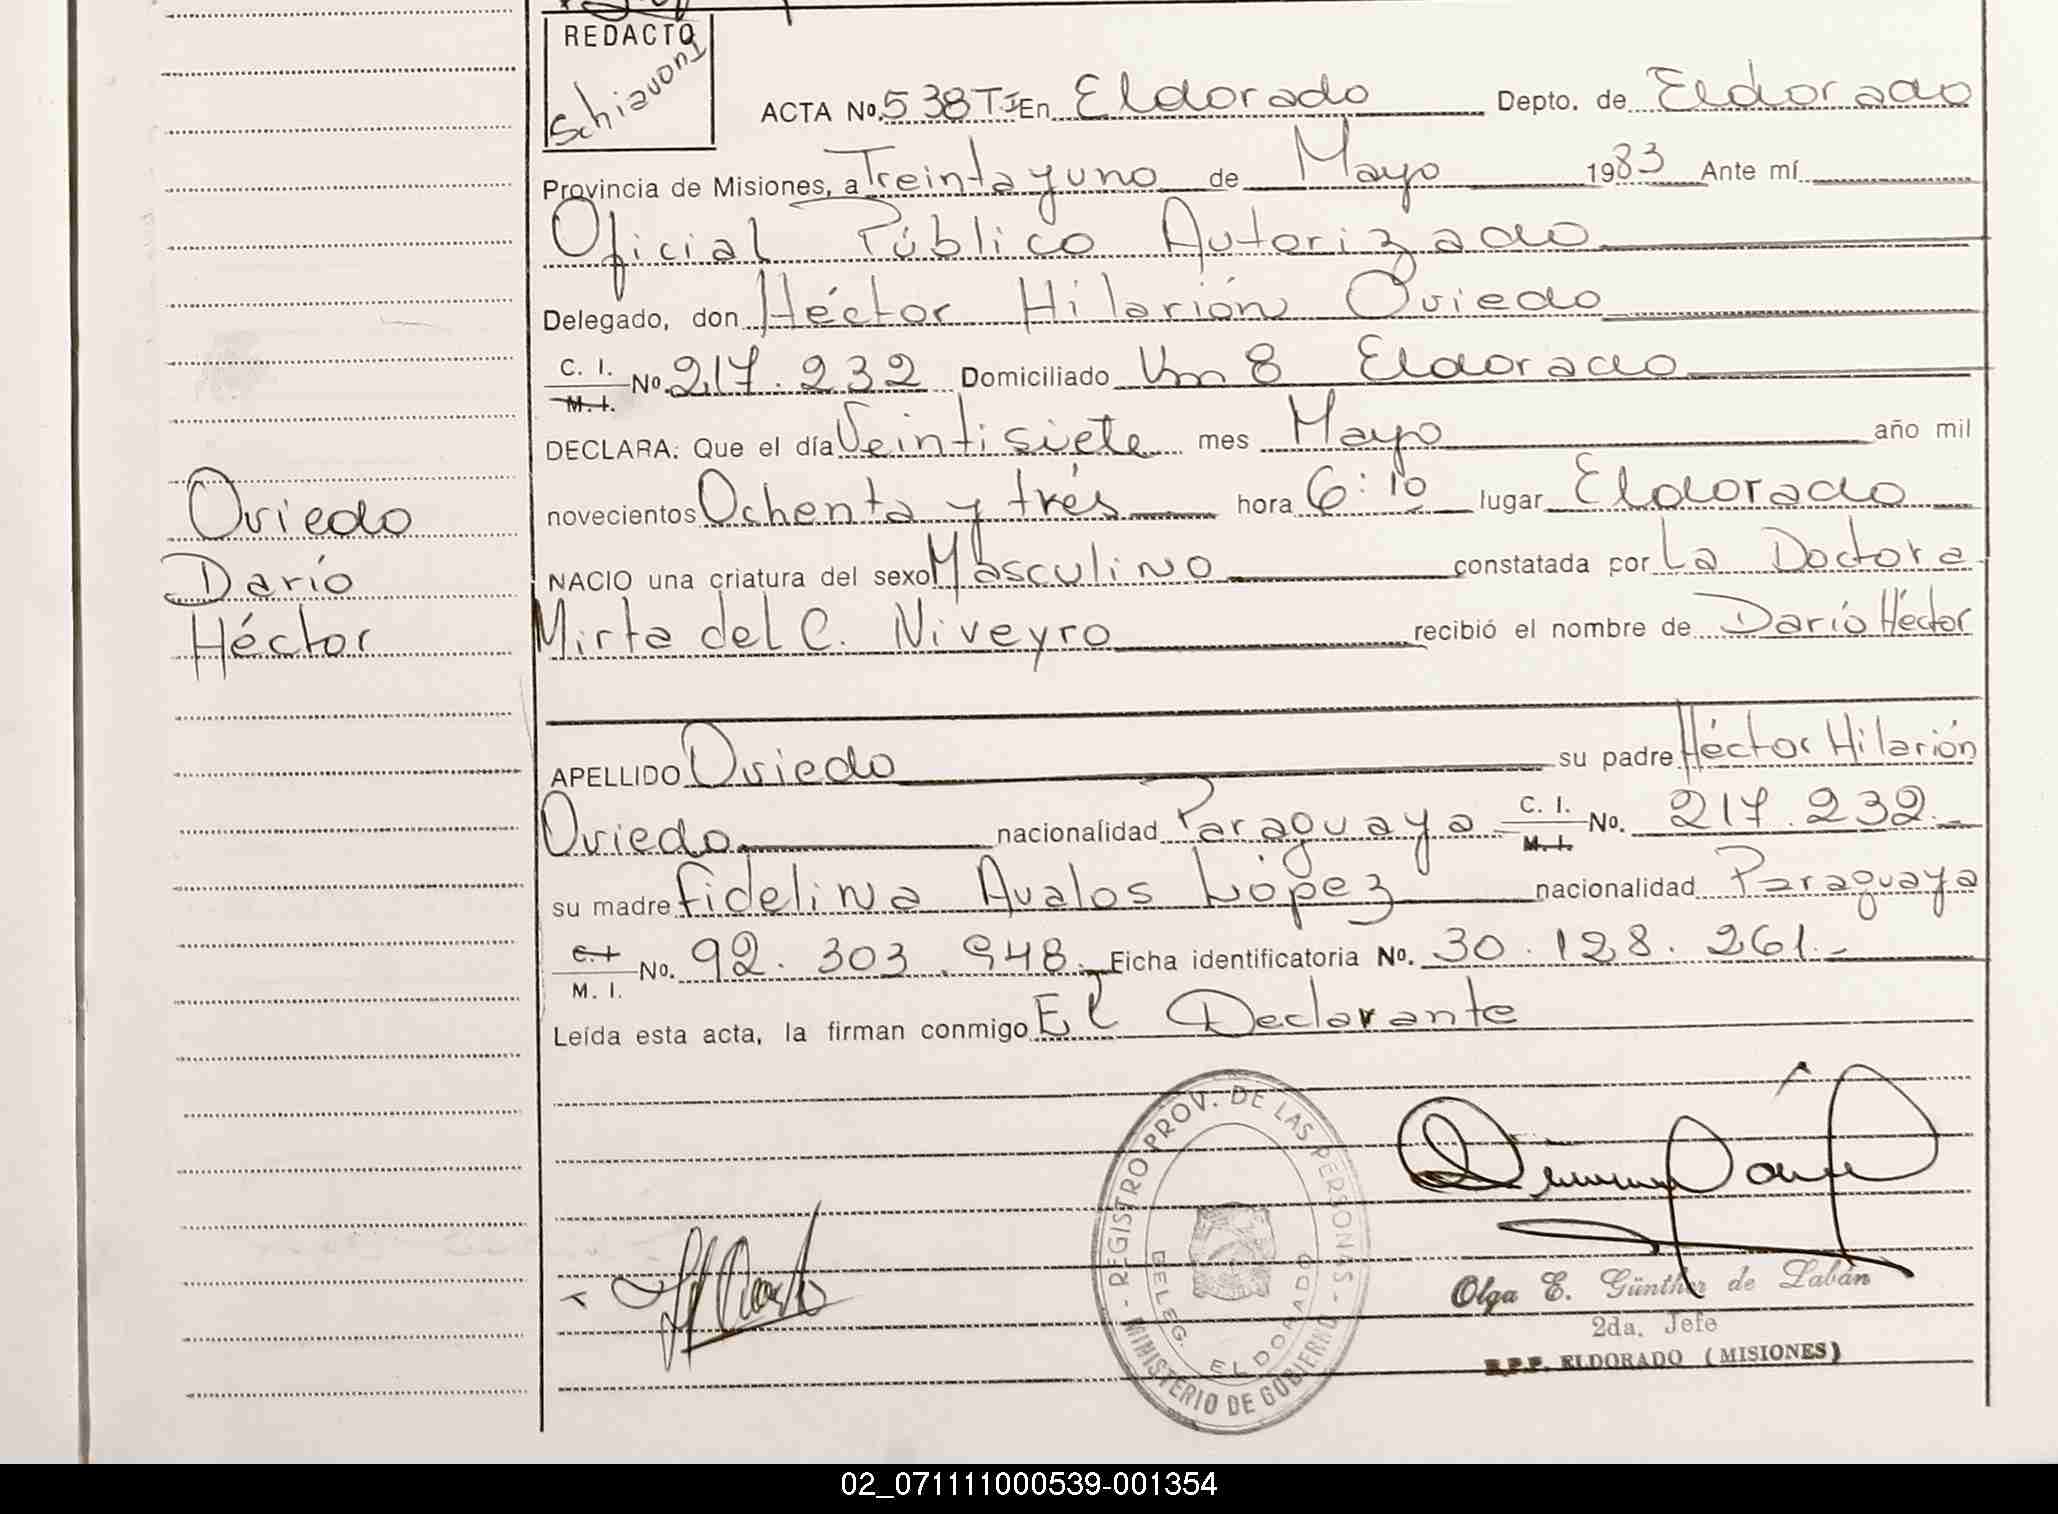 REDACTO
Schiavoni
ACTA No. 538 TI En Eldorado Depto. de Eldorado
Provincia de Misiones, a Treinta y uno de Mayo 1983 Ante mí
Oficial Público Autorizado
Delegado, don Héctor Hilarión Oviedo
C. I.
M. I. No. 217.232 Domiciliado Km 8 Eldorado
DECLARA: Que el día Veintisiete mes Mayo año mil
novecientos Ochenta y trés hora 6:10 lugar Eldorado
NACIO una criatura del sexo Masculino constatada por La Doctora
Mirta del C. Niveyro recibió el nombre de Darío Héctor
Oviedo
Darío
Héctor
APELLIDO Oviedo su padre Héctor Hilarión
Oviedo nacionalidad Paraguaya C. I. M. I. No. 217.232.-
su madre Fidelina Avalos López nacionalidad Paraguaya
C. I.
M. I. No. 92.303.948. Ficha identificatoria No. 30.128.261.-
Leída esta acta, la firman conmigo El Declarante
- REGISTRO PROV. DE LAS PERSONAS -
MINISTERIO DE GOBIERNO
DELEG. ELDORADO
Olga E. Günther de Labán
2da. Jefe
R.P.P. ELDORADO (MISIONES)
02_071111000539-001354